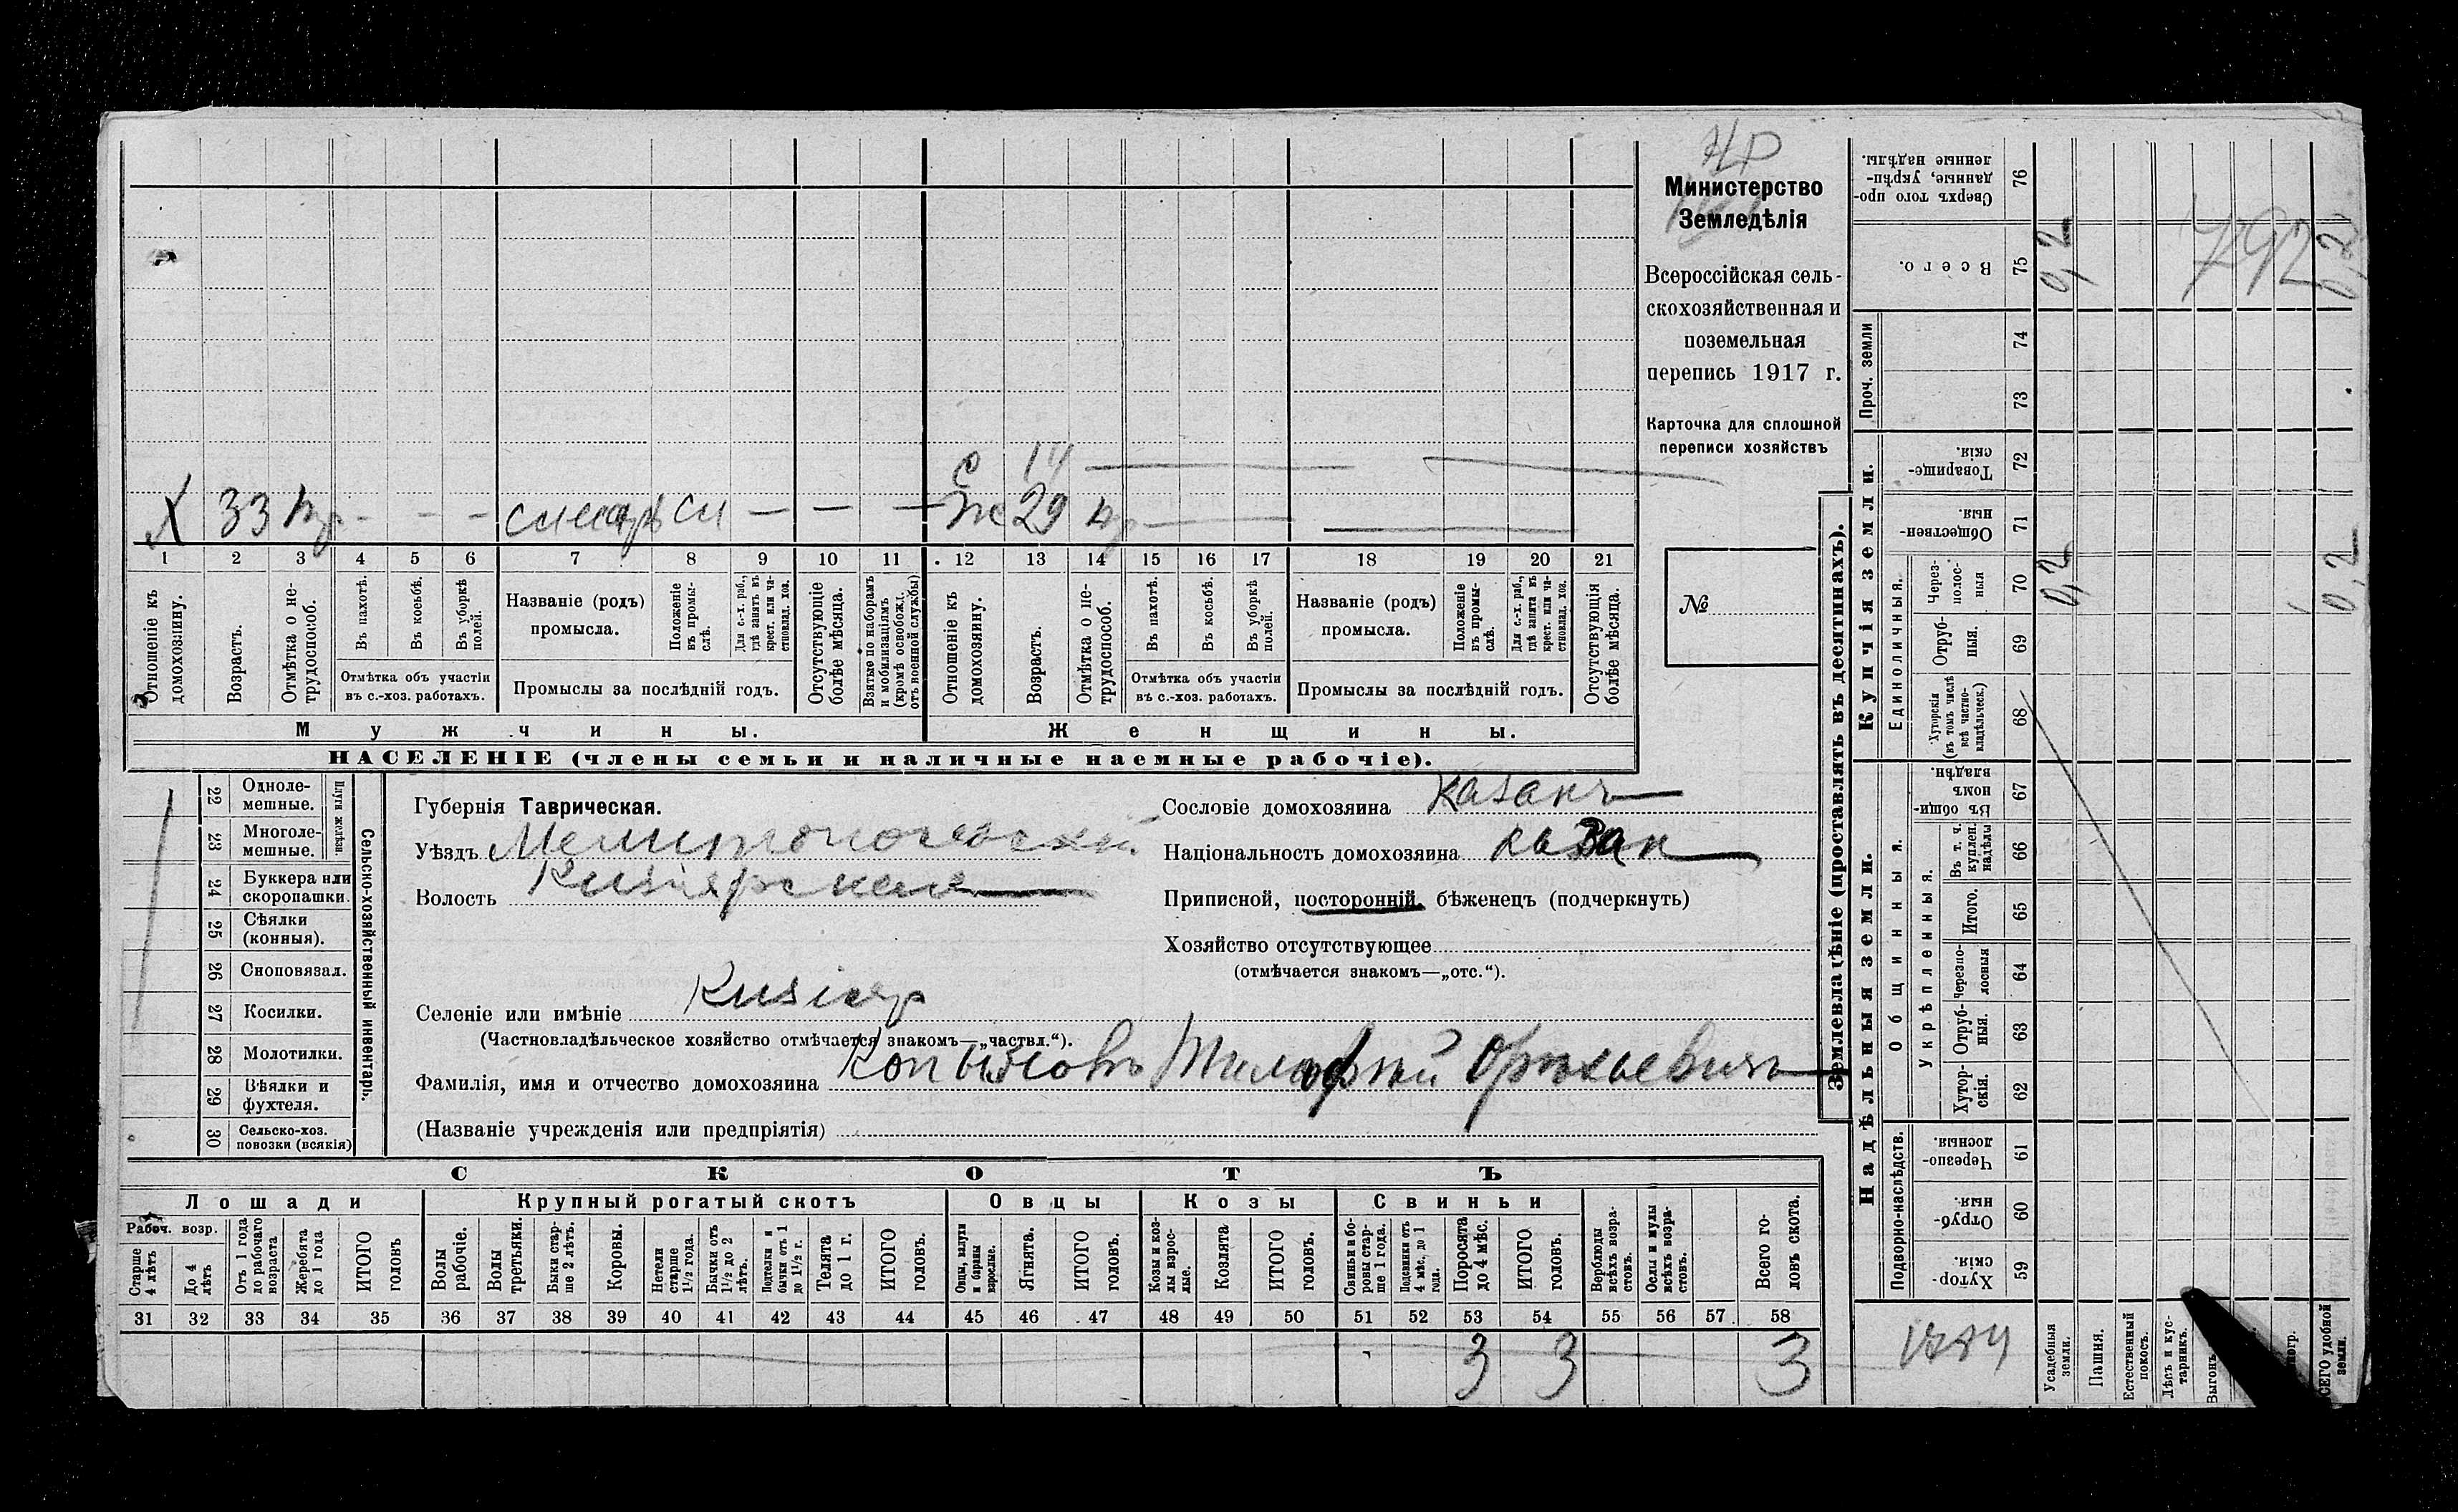 Министерство
Земледѣлія
Всероссійская сель-
скохозяйственная и
поземельная
перепись 1917 г.
Карточка для сплошной
переписи хозяйствъ
№
С 14
Х 33 - - - — — — Ж 29
1 2 3 4 5 6 7 8 9 10 11 12 13 14 15 16 17 18 19 20 21
Отношеніе къ домохозяину.
Возрастъ.
Отмѣтка о не-трудоспособ.
Въ пахотѣ.
Въ косьбѣ.
Въ уборкѣ полей.
Отмѣтка объ участіи
въ с.-хоз. работахъ.
Названіе (родъ)
промысла.
Положеніе въ промы-слѣ.
Для с.-х. раб., гдѣ занятъ въ крест. или ча-стновлад. хоз.
Промыслы за послѣдній годъ.
Отсутствующіе болѣе мѣсяца.
Взятые по наборамъ и мобилизаціямъ (кромѣ освобожд. отъ военной службы)
Отношеніе къ домохозяину.
Возрастъ.
Отмѣтка о не-трудоспособ.
Въ пахотѣ.
Въ косьбѣ.
Въ уборкѣ полей.
Отмѣтка объ участіи
въ с.-хоз. работахъ.
Названіе (родъ)
промысла.
Положеніе въ промы-слѣ.
Для с.-х. раб., гдѣ занята въ крест. или ча-стновлад. хоз.
Промыслы за послѣдній годъ.
Отсутствующія болѣе мѣсяца.
Мужчины.
Женщины.
НАСЕЛЕНІЕ (члены семьи и наличные наемные рабочіе).
22 Одноле-мешные.
23 Многоле-мешные.
Плуги желѣзн.
24 Буккера или скоропашки.
25 Сѣялки (конныя).
26 Сноповязал.
27 Косилки.
28 Молотилки.
29 Вѣялки и фухтеля.
30 Сельско-хоз. повозки (всякія)
Сельско-хозяйственный инвентарь.
Губернія Таврическая.
Уѣздъ Мелитопольскій
Волость Кизіярская
Селеніе или имѣніе Кизіяр
(Частновладѣльческое хозяйство отмѣчается знакомъ—„частвл.“).
Фамилія, имя и отчество домохозяина
(Названіе учрежденія или предпріятія)
Сословіе домохозяина казакъ
Національность домохозяина казак
Приписной, посторонній, бѣженецъ (подчеркнуть)
Хозяйство отсутствующее
(отмѣчается знакомъ—„отс.“).
СКОТЪ
Лошади
Крупный рогатый скотъ
Овцы
Козы
Свиньи
Рабоч. возр.
Старше 4 лѣтъ
До 4 лѣтъ
Отъ 1 года до рабочаго возраста
Жеребята до 1 года
ИТОГО головъ
Волы рабочіе.
Волы третьяки.
Быки стар-ше 2 лѣтъ.
Коровы.
Нетели старше 1½ года.
Бычки отъ 1½ до 2 лѣтъ.
Подтелки и бычки отъ 1 до 1½ г.
Телята до 1 г.
ИТОГО головъ.
Овцы, валухи и бараны взрослые.
Ягнята.
ИТОГО головъ.
Козы и коз-лы взрос-лые.
Козлята
ИТОГО головъ.
Свиньи и бо-ровы стар-ше 1 года.
Подсвинки отъ 4 мѣс. до 1 года.
Поросята до 4 мѣс.
ИТОГО головъ.
Верблюды всѣхъ возра-стовъ.
Ослы и мулы всѣхъ возра-стовъ.
Всего го-ловъ скота.
31 32 33 34 35 36 37 38 39 40 41 42 43 44 45 46 47 48 49 50 51 52 53 54 55 56 57 58
3 3 3
Землевладѣніе (проставлять въ десятинахъ).
Надѣльныя земли.
Купчія земли.
Проч. земли
Общинныя.
Укрѣпленныя.
Единоличныя.
Подворно-наслѣдств.
Сверхъ того про-данные, укрѣп-ленные надѣлы. 76
Всего. 75 0,2 792 0,2
74
73
Товарище-скія. 72
Обществен-ныя. 71
Через-полос-ныя 70 0,2 0,2
Отруб-ныя. 69
Хуторскія (въ томъ числѣ всѣ частно-владѣльческ.) 68
Въ общи-номъ владѣн. 67
Въ т. ч. куплен. надѣлы 66
Итого. 65
Черезпо-лосныя 64
Отруб-ныя. 63
Хутор-скія. 62
Черезпо-лосныя. 61
Отруб-ныя. 60
Хутор-скія. 59
Усадебныя земли.
Пашня.
Естественный покосъ.
Лѣсъ и кус-тарникъ.
Выгонъ